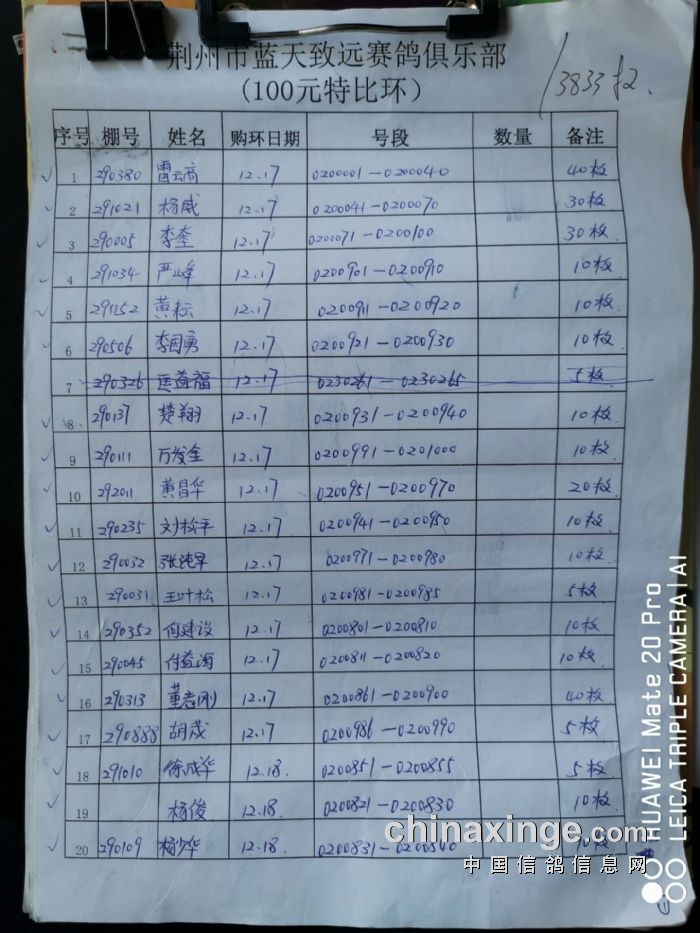 荆州市蓝天致远赛鸽俱乐部
(100元特比环)
3833枚
序号 棚号 姓名 购环日期 号段 数量 备注
1 290380 雷云高 12.17 0200001-0200040 40枚
2 291021 杨威 12.17 0200041-0200070 30枚
3 290005 李奎 12.17 0200071-0200100 30枚
4 291034 严峰 12.17 0200901-0200910 10枚
5 291152 黄耘 12.17 0200911-0200920 10枚
6 290506 李国勇 12.17 0200921-0200930 10枚
7 290326 匡益福 12.17 0230261-0230265 5枚
8 290137 楚翔 12.17 0200931-0200940 10枚
9 290111 万发金 12.17 0200991-0201000 10枚
10 292011 黄昌华 12.17 0200951-0200970 20枚
11 290235 刘松平 12.17 0200941-0200950 10枚
12 290032 12.17 0200971-0200980 10枚
13 290031 王叶松 12.17 0200981-0200985 5枚
14 290352 何建设 12.17 0200801-0200810 10枚
15 290045 12.17 0200811-0200820 10枚
16 290313 董志刚 12.17 0200861-0200900 40枚
17 290888 胡茂 12.17 0200986-0200990 5枚
18 291010 徐成华 12.18. 0200851-0200855 5枚
19 杨俊 12.18. 0200821-0200830 10枚
20 290109 杨少华 12.18. 0200831-0200840 10枚
chinaxinge.com
中国信鸽信息网
HUAWEI Mate 20 Pro
LEICA TRIPLE CAMERA | AI